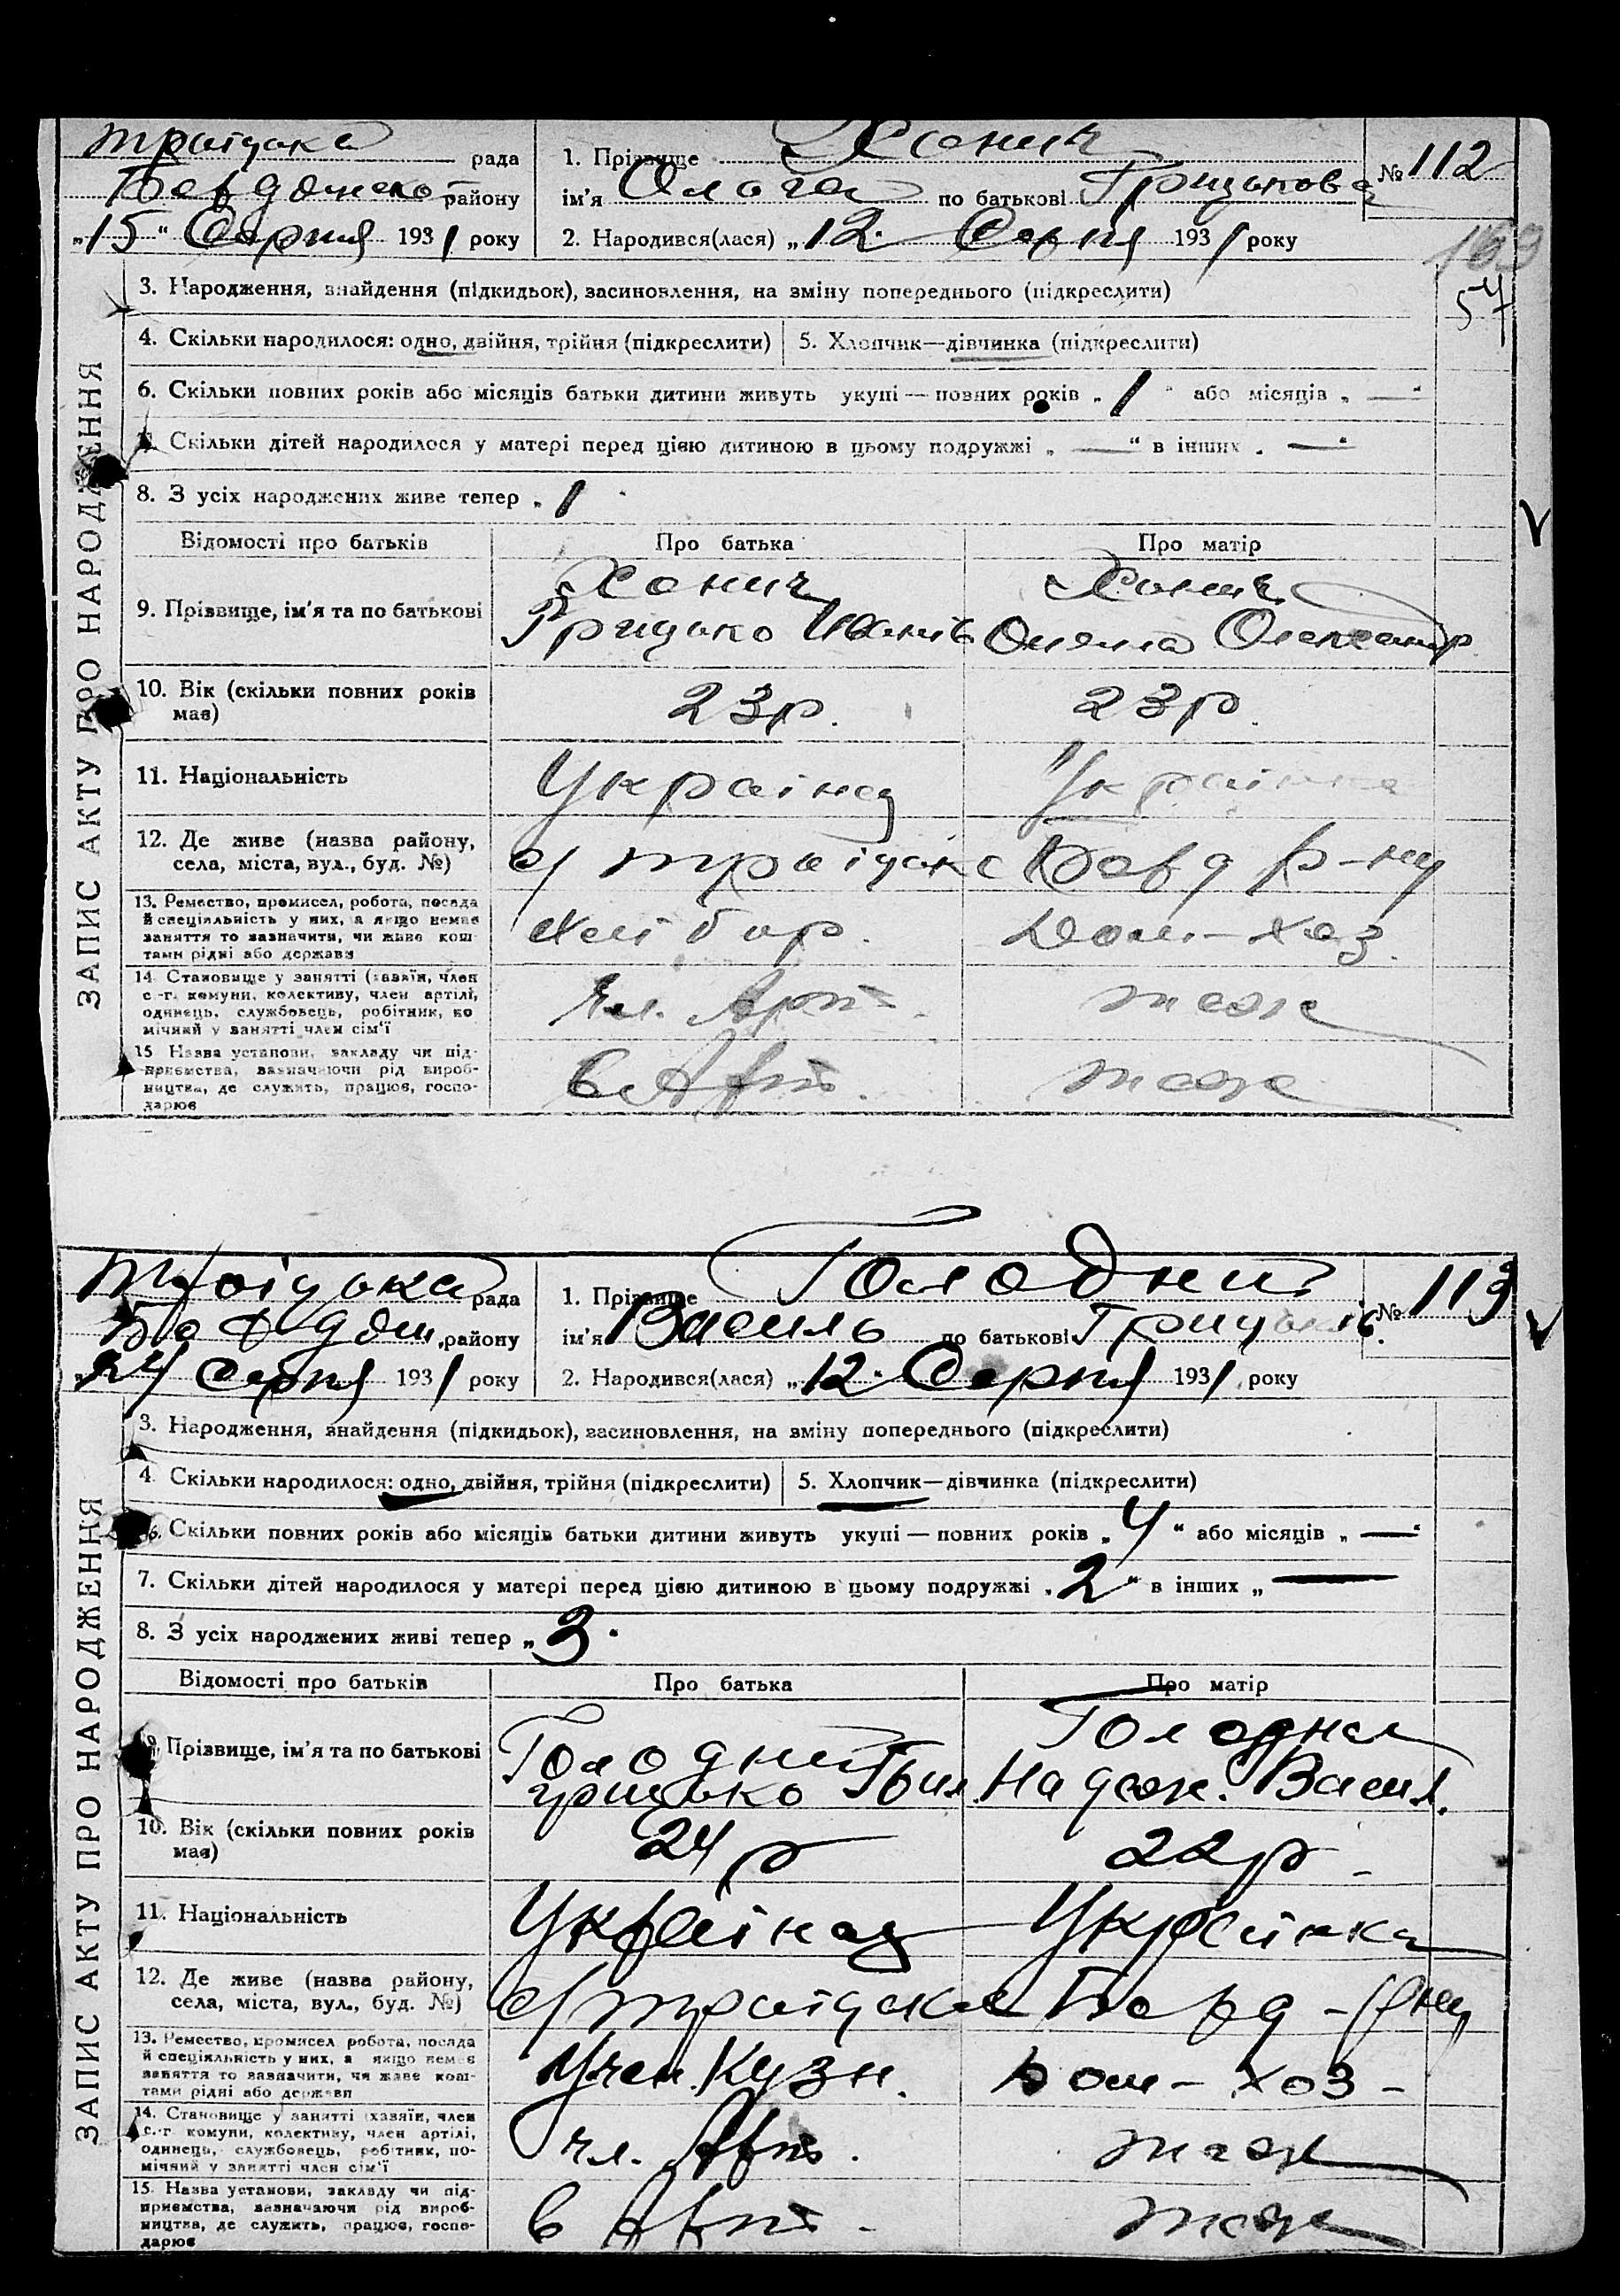 Троїцька рада
1. Прізвище Хонич
№ 112
Бердянсько району
ім'я Ольга по батькові Грицькова
„15“ Серпня 1931 року
2. Народився(лася) „12. Серпня 1931 року
169
57
ЗАПИС АКТУ ПРО НАРОДЖЕННЯ
3. Народження, знайдення (підкидьок), засиновлення, на зміну попереднього (підкреслити)
4. Скільки народилося: одно, двійня, трійня (підкреслити) 5. Хлопчик—дівчинка (підкреслити)
6. Скільки повних років або місяців батьки дитини живуть укупі — повних років „ 1 “ або місяців „ — “
7. Скільки дітей народилося у матері перед цією дитиною в цьому подружжі „ — “ в інших „ — “
8. З усіх народжених живе тепер „ 1
Відомості про батьків Про батька Про матір
9. Прізвище, ім'я та по батькові
Хонич Хонич
Грицько Иванів Олександр
10. Вік (скільки повних років має)
23р. 23р.
11. Національність
Українец Українка
12. Де живе (назва району, села, міста, вул., буд. №)
с/ Троїцьке Берд р-ну
13. Ремество, промисел, робота, посада й спеціяльність у них, а якщо немає заняття то зазначити, чи живе коштами рідні або держави
Дом-хоз.
14. Становище у занятті (хазяїн, член с.-г. комуни, колективу, член артілі, одинець, службовець, робітник, помічний у занятті член сім'ї
Чл. Арт. тоже
15. Назва установи, закладу чи підприємства, зазначаючи рід виробництва, де служить, працює, господарює
в Арт. тоже
Троїцька рада
1. Прізвище Голодний
№ 113
Бердян. району
ім'я Василь по батькові Грицьків.
„24 Серпня 1931 року
2. Народився(лася) „12. Серпня 1931 року
ЗАПИС АКТУ ПРО НАРОДЖЕННЯ
3. Народження, знайдення (підкидьок), засиновлення, на зміну попереднього (підкреслити)
4. Скільки народилося: одно, двійня, трійня (підкреслити) 5. Хлопчик—дівчинка (підкреслити)
6. Скільки повних років або місяців батьки дитини живуть укупі — повних років „ 4 “ або місяців „ — “
7. Скільки дітей народилося у матері перед цією дитиною в цьому подружжі „ 2 “ в інших „ —
8. З усіх народжених живі тепер „ 3.
Відомості про батьків Про батька Про матір
9. Прізвище, ім'я та по батькові
Голодний Голодная
Грицько Надеж. Васил.
10. Вік (скільки повних років має)
24р 22р.
11. Національність
Українец Українка
12. Де живе (назва району, села, міста, вул., буд. №)
с/ Троїцьке Берд-рну
13. Ремество, промисел робота, посада й спеціяльність у них, а якщо немає заняття то зазначити, чи живе коштами рідні або держави
Учен. Кузн. Дом-хоз-
14. Становище у занятті (хазяїн, член с.-г комуни, колективу, член артілі, одинець, службовець, робітник, помічний у занятті член сім'ї
чл. Арт. тоже
15. Назва установи, закладу чи підприємства, зазначаючи рід виробництва, де служить, працює, господарює
в Арт. тоже